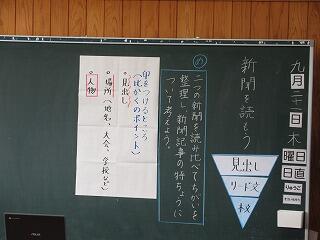 九月三十日木曜日
日直
りゅうご
新聞を読もう
見出し
リード文
本文
め
二つの新聞を読み比べてちがいを
整理し、新聞記事の特ちょうに
ついて考えよう。
印をつけるところ
(比かくのポイント)
○見出し
○場所(地名、大会、学校など)
○人物
ASUS